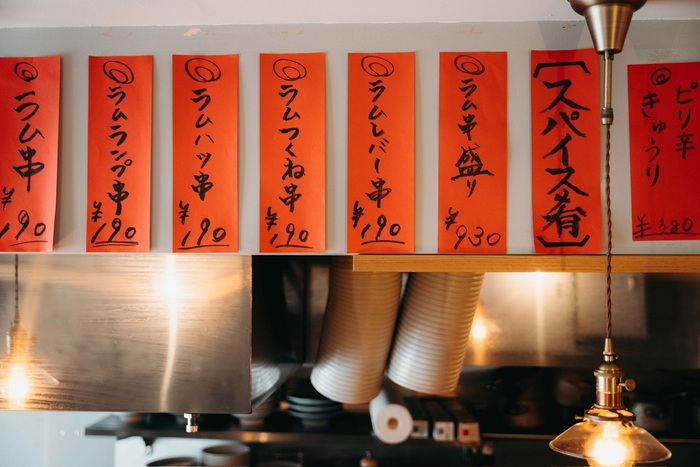 ラム串
¥190
ラムランプ串
¥190
ラムハツ串
¥190
ラムつくね串
¥190
ラムレバー串
¥190
ラム串盛り
¥930
[スパイス肴]
ピリ辛
きゅうり
¥380